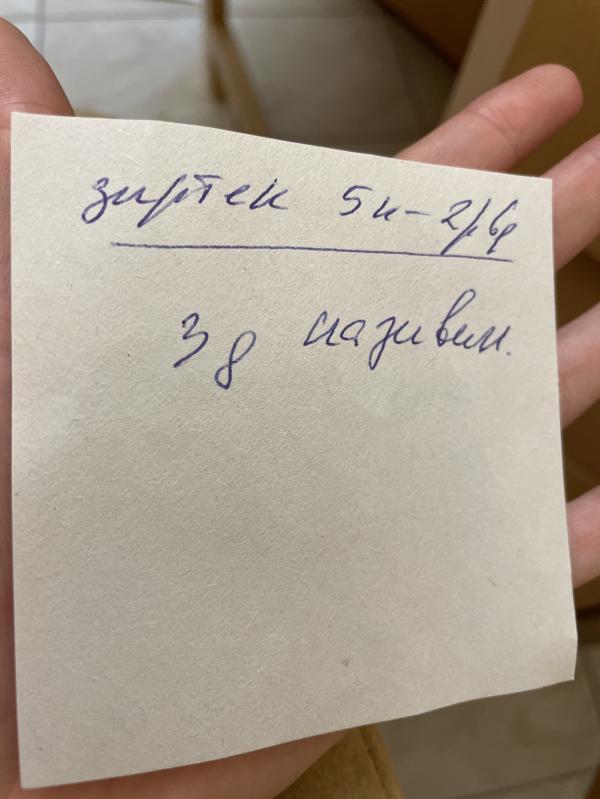 зиртек 5к - 2р/д
3 д називин.